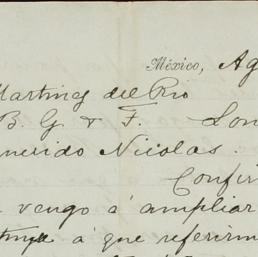 México, Ag
Martinez del Rio
B. G. & F. Lon
querido Nicolas.
Confir
vengo á ampliar
á que referirm